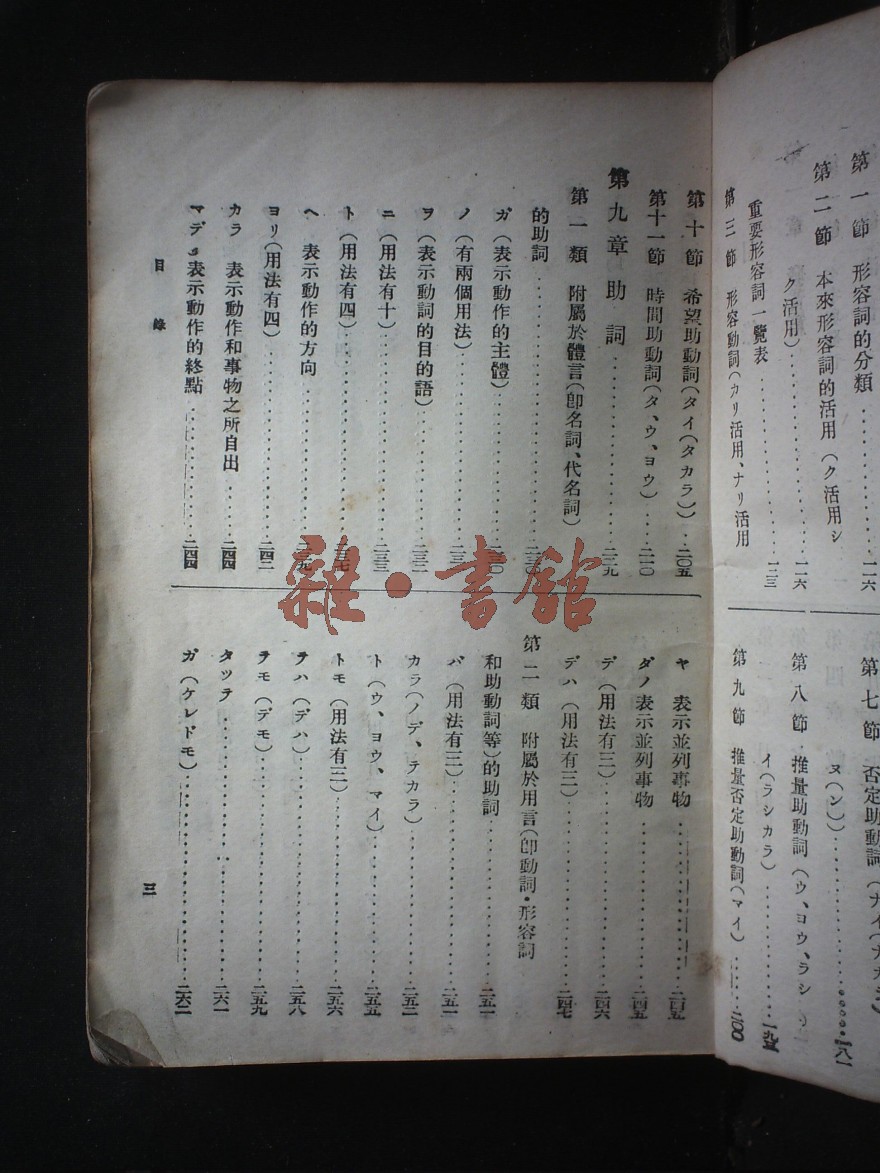 第一節 形容詞的分類 一一六
第二節 本來形容詞的活用(ク活用シ
ク活用) 一一六
重要形容詞一覽表 一二三
第三節 形容動詞(カリ活用、ナリ活用
第七節 否定助動詞(ナイ(ナカラ)
ヌ(ン)) 一八一
第八節 推量助動詞(ウ、ヨウ、ラシ
イ(ラシカラ) 一九五
第九節 推量否定助動詞(マイ) 二〇〇
第十節 希望助動詞(タイ(タカラ)) 二〇五
第十一節 時間助動詞(タ、ウ、ヨウ) 二一〇
第九章 助詞
第一類 附屬於體言(卽名詞、代名詞)
的助詞
ガ(表示動作的主體)
ノ(有兩個用法)
ヲ(表示動詞的目的語) 二三二
ニ(用法有十) 二三三
ト(用法有四)
ヘ 表示動作的方向
ヨリ(用法有四) 二四二
カラ 表示動作和事物之所自出 二四四
マデ 表示動作的終點 二四四
ヤ 表示並列事物 二四五
ダノ 表示並列事物 二四五
デ(用法有三) 二四六
デハ(用法有三) 二四七
第二類 附屬於用言(卽動詞・形容詞
和助動詞等)的助詞 二五一
バ(用法有三) 二五一
カラ(ノデ、テカラ) 二五二
ト(ウ、ヨウ、マイ) 二五五
トモ(用法有三) 二五六
テハ(デハ) 二五八
テモ(デモ) 二五九
タッテ 二六一
ガ(ケレドモ) 二六二
目錄
三
雜・書館